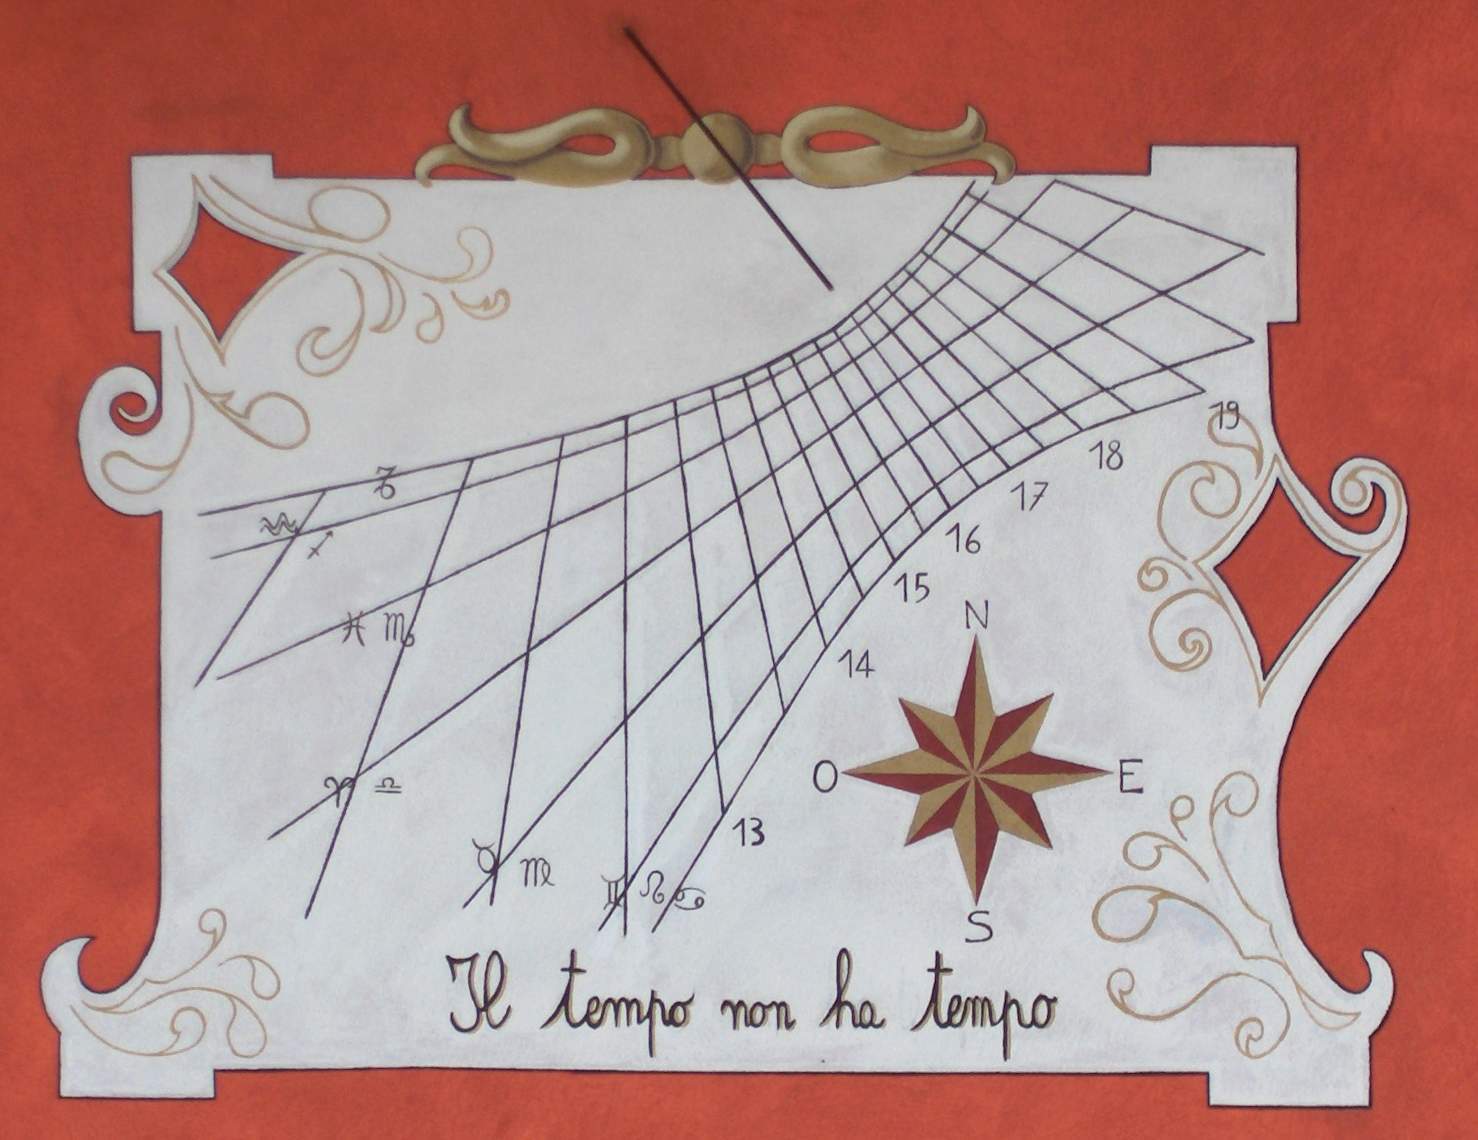 19
18
♑
17
♒ ♐
16
15
♓ ♏
N
14
O E
♈ ♎
13
♉ ♍
♊ ♌ ♋
S
Il tempo non ha tempo